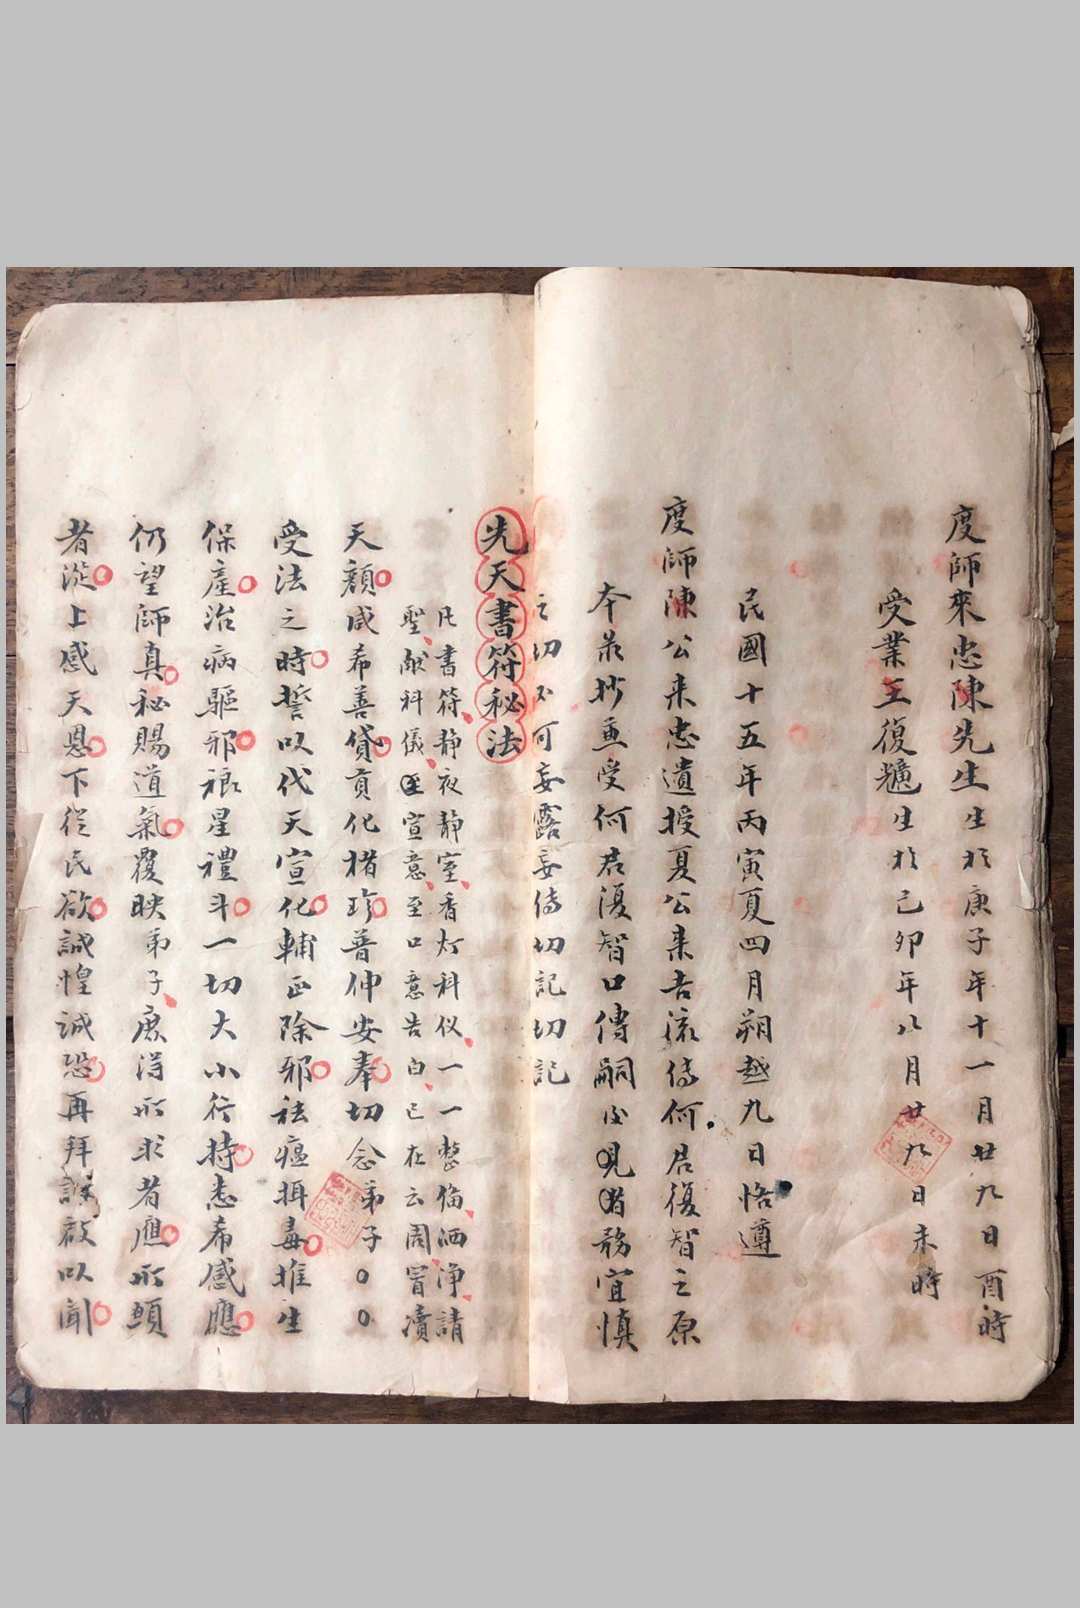 度師來忠陳先生生於庚子年十一月廿九日酉時
受業王復魑生於己卯年八月廿九日未時
民國十五年丙寅夏四月朔越九日恪遵
度師陳公来忠遺授夏公来吉派傳何君復智之原
本录抄並受何君復智口傳嗣後見者務宜慎
之切不可妄露妄傳切記切記
先天書符秘法
凡書符静夜静室香灯科仪一一整俻洒净請
聖献科儀至宣意至口意告白已在云周冒瀆
天顏咸希善貸貢化楷珍普伸安奉切念弟子〇〇
受法之時誓以代天宣化輔正除邪祛瘟揖毒推生
保產治病驅邪禳星禮斗一切大小行持悉希感應
仍望師真秘賜道氣覆映弟子庻淂所求者應所願
者從上感天恩下從民欲誠惶誠恐再拜謹啟以聞